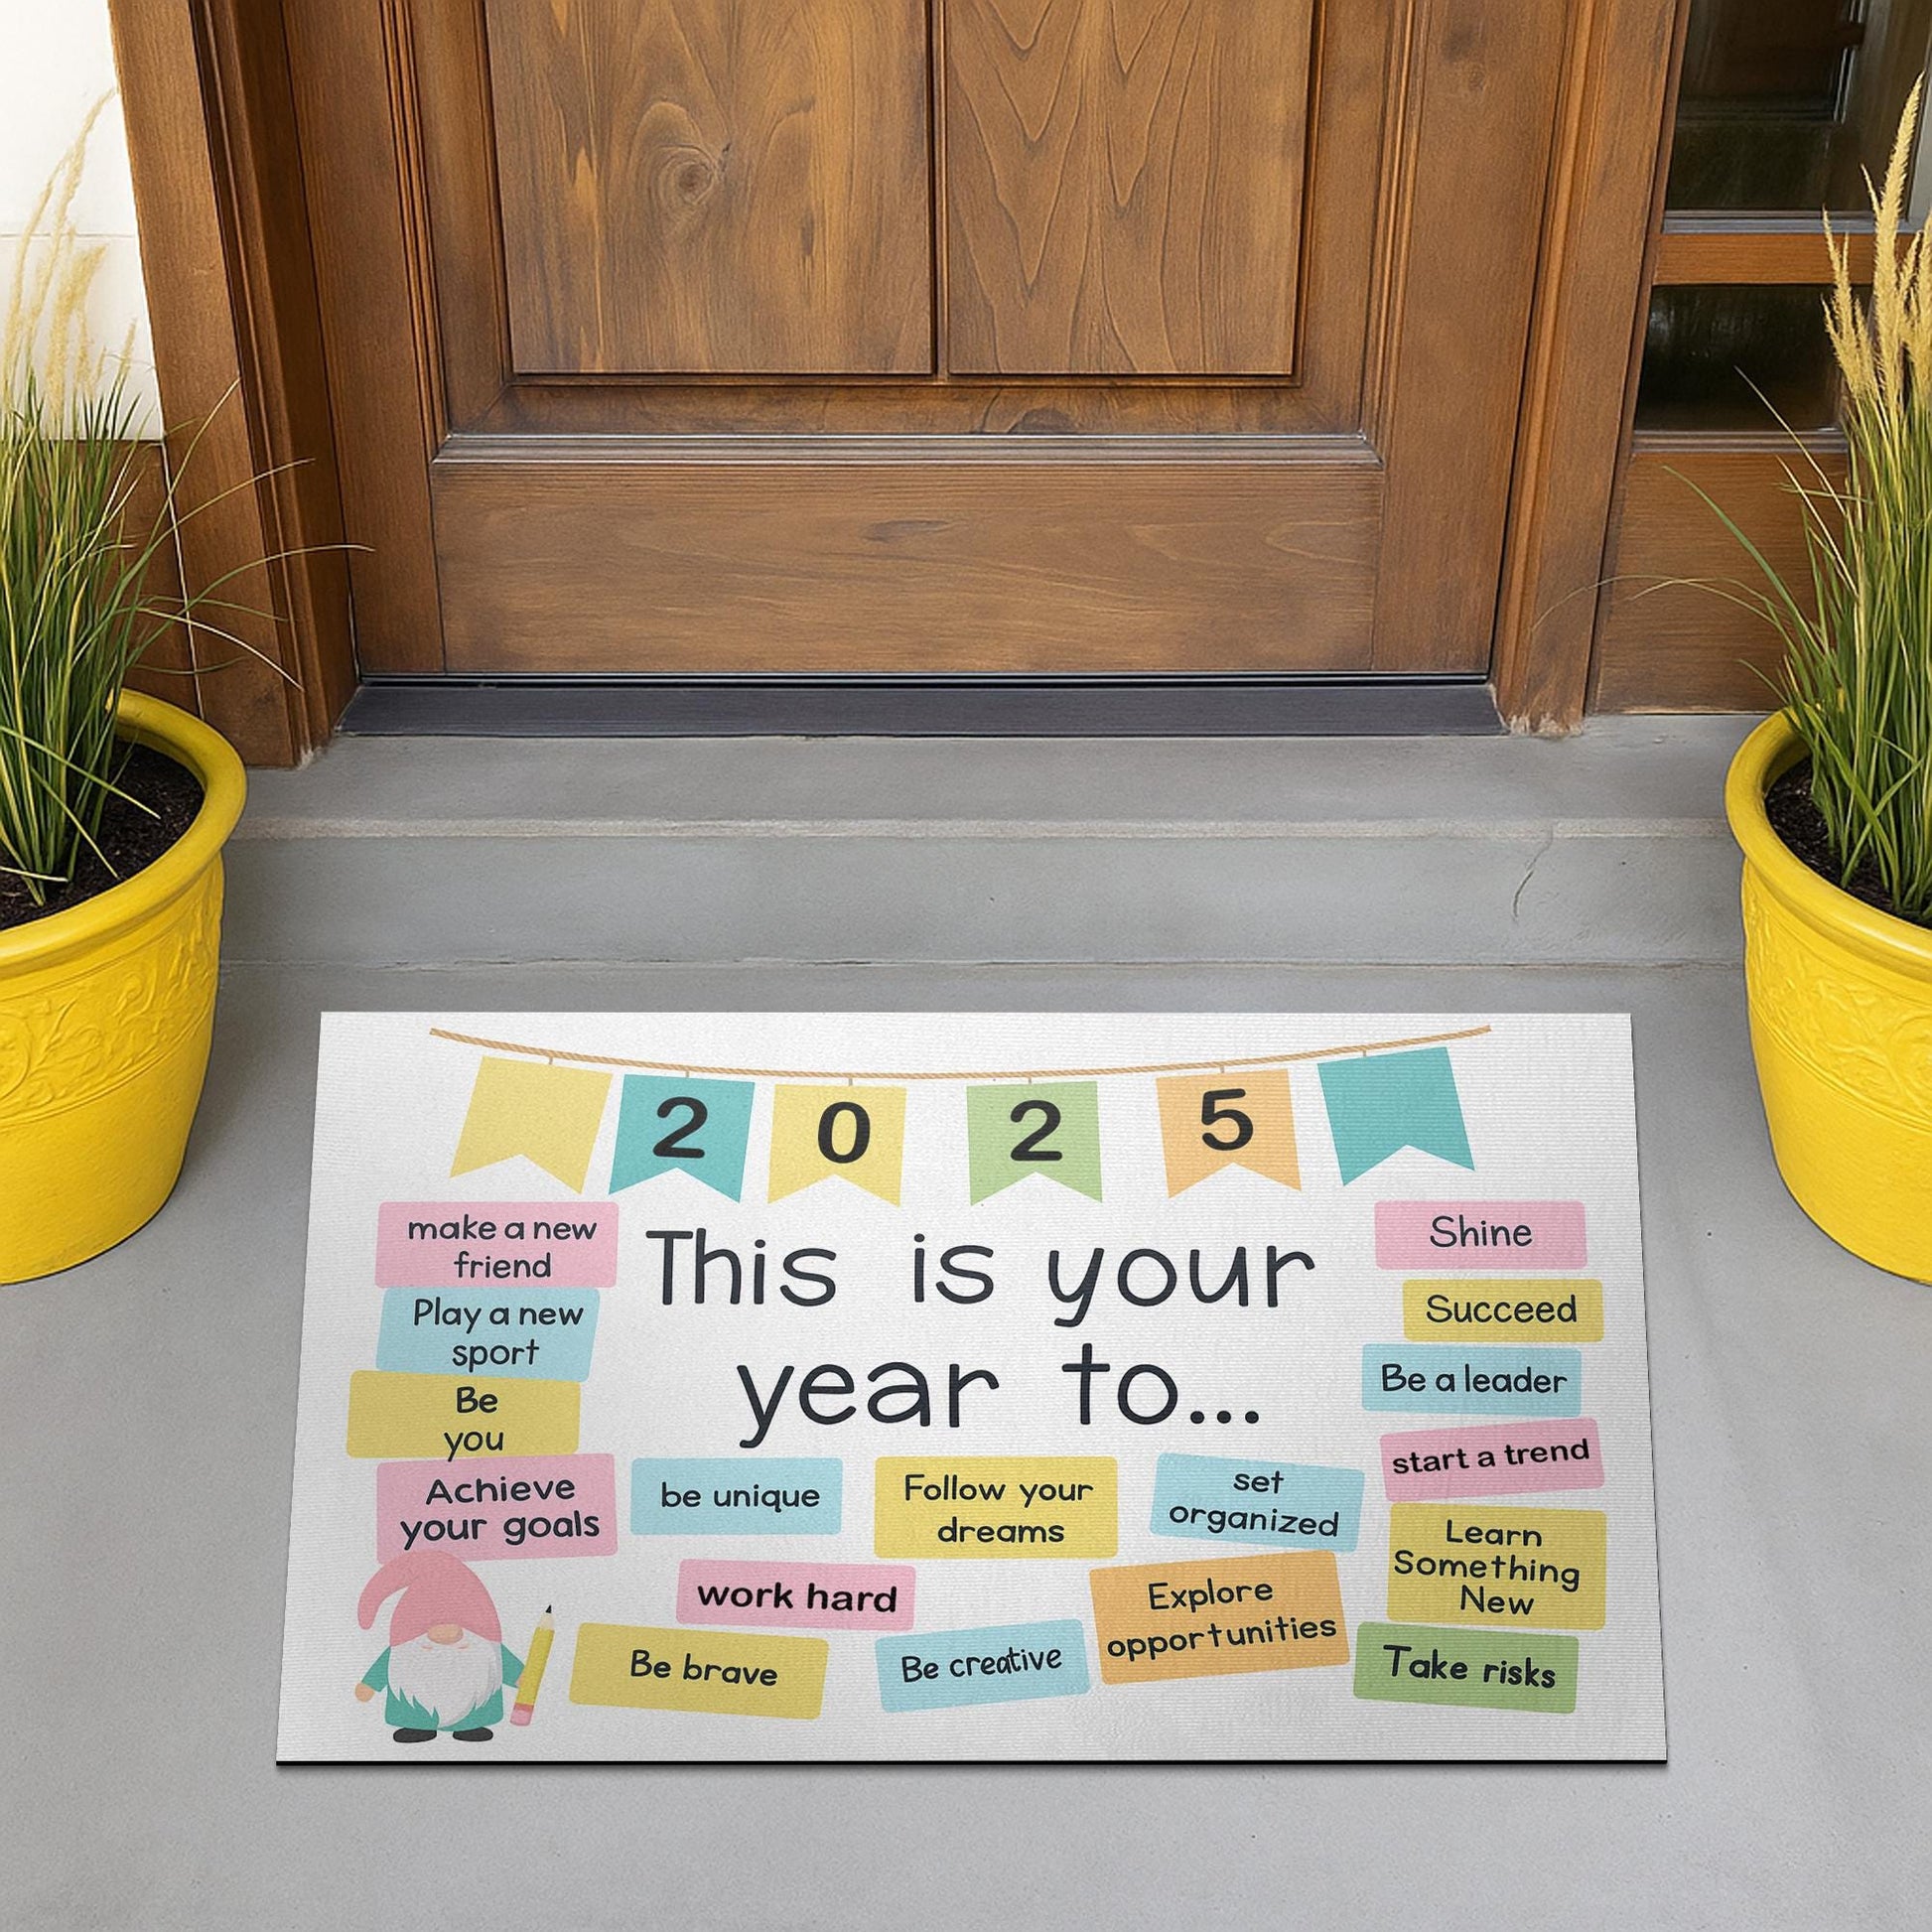 2 0 2 5
This is your
year to...
make a new
friend
Play a new
sport
Be
you
Achieve
your goals
be unique
Follow your
dreams
set
organized
work hard
Be brave
Be creative
Explore
opportunities
Shine
Succeed
Be a leader
start a trend
Learn
Something
New
Take risks